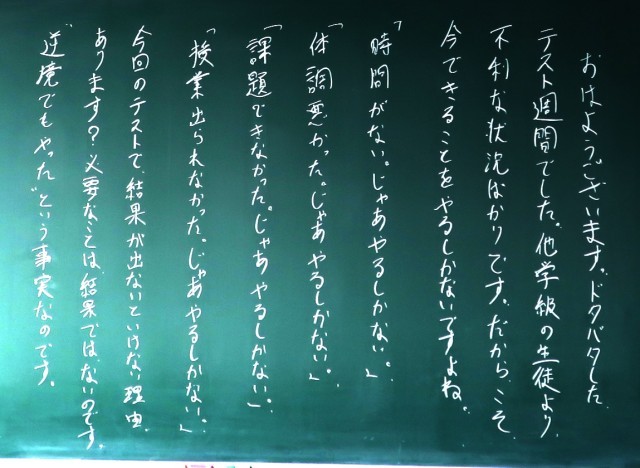 おはようございます。ドタバタした
テスト週間でした。他学級の生徒より、
不利な状況ばかりです。だからこそ、
今できることをやるしかないですよね。
「時間がない。じゃあやるしかない。」
「体調悪かった。じゃあやるしかない。」
「課題できなかった。じゃあやるしかない。」
「授業出られなかった。じゃあやるしかない。」
今回のテストで、結果が出ないといけない理由、
あります？必要なことは、結果ではないのです。
"逆境でもやった"という事実なのです。